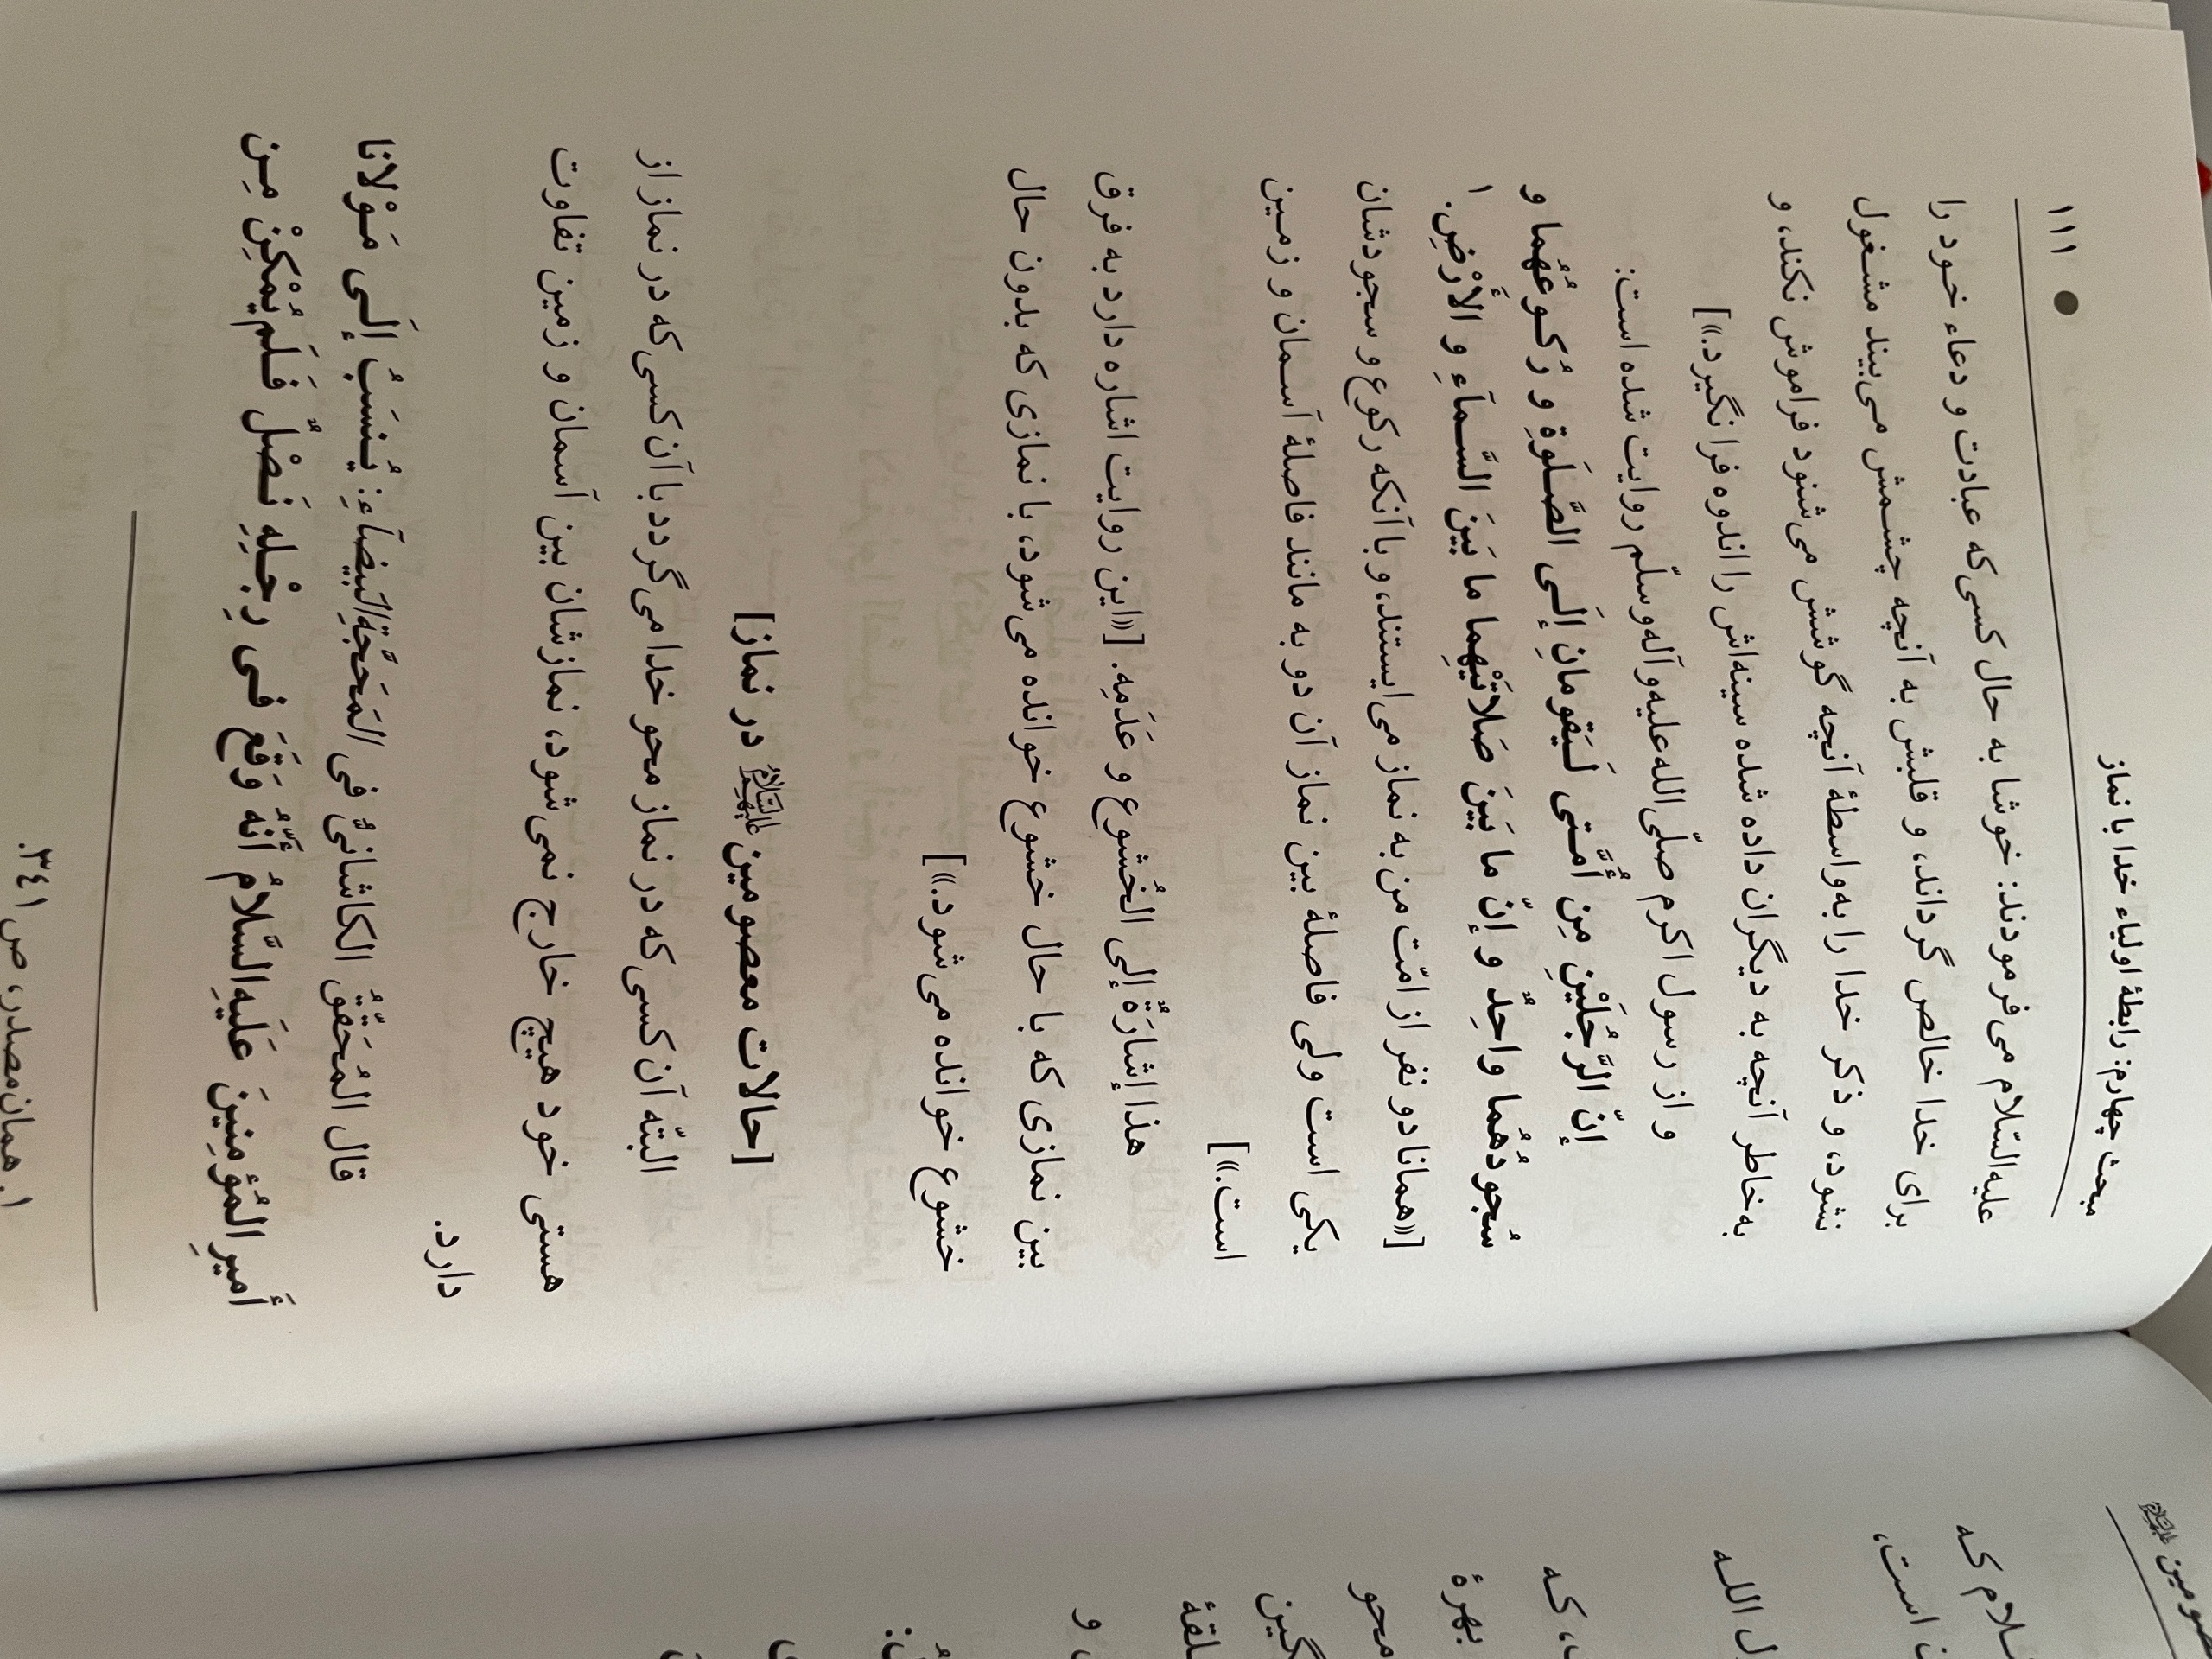 مبحث چهارم: رابطهٔ اولیاء خدا با نماز ● ۱۱۱
علیه‌السّلام می‌فرمودند: خوشا به حال کسی که عبادت و دعاء خود را
برای خدا خالص گرداند، و قلبش به آنچه چشمش می‌بیند مشغول
نشود، و ذکر خدا را به‌واسطهٔ آنچه گوشش می‌شنود فراموش نکند، و
به‌خاطر آنچه به دیگران داده شده سینه‌اش را اندوه فرا نگیرد.»]
و از رسول اکرم صلّی‌الله‌علیه‌وآله‌وسلّم روایت شده است:
إنّ الرَّجُلَیْنِ مِن أُمَّتی لَیَقومانِ إلَی الصَّلَوةِ و رُکوعُهُما و
سُجودُهُما واحِدٌ و إنّ ما بَینَ صَلاتَیْهِما ما بَینَ السَّماءِ و الأرْضِ.۱
[«همانا دو نفر از امّت من به نماز می‌ایستند، و با آنکه رکوع و سجودشان
یکی است ولی فاصلهٔ بین نماز آن دو به مانند فاصلهٔ آسمان و زمین
است.»]
هذا إشارَةٌ إلی الخُشوع و عَدَمِه. [«این روایت اشاره دارد به فرق
بین نمازی که با حال خشوع خوانده می‌شود، با نمازی که بدون حال
خشوع خوانده می‌شود.»]
[حالات معصومین علیهم‌السّلام در نماز]
البتّه آن کسی که در نماز محو خدا می‌گردد با آن کسی که در نماز از
هستی خود هیچ خارج نمی‌شود، نمازشان بین آسمان و زمین تفاوت
دارد.
قال المُحَقِّقُ الکاشانیُّ فی المَحَجَّةِ‌البَیضاءِ: یُنسَبُ إلَی مَوْلانا
أمیرِ المُؤمِنینَ عَلَیهِ‌السَّلامُ أنَّهُ وَقَعَ فی رِجْلِهِ نَصْلٌ فَلَم یُمْکِنْ مِن
۱. همان‌مصدر، ص ۳٤۱.
صومین علیهم‌السّلام
سلام که
است،
ل الله
که
بهرهٔ
محو
گین
و